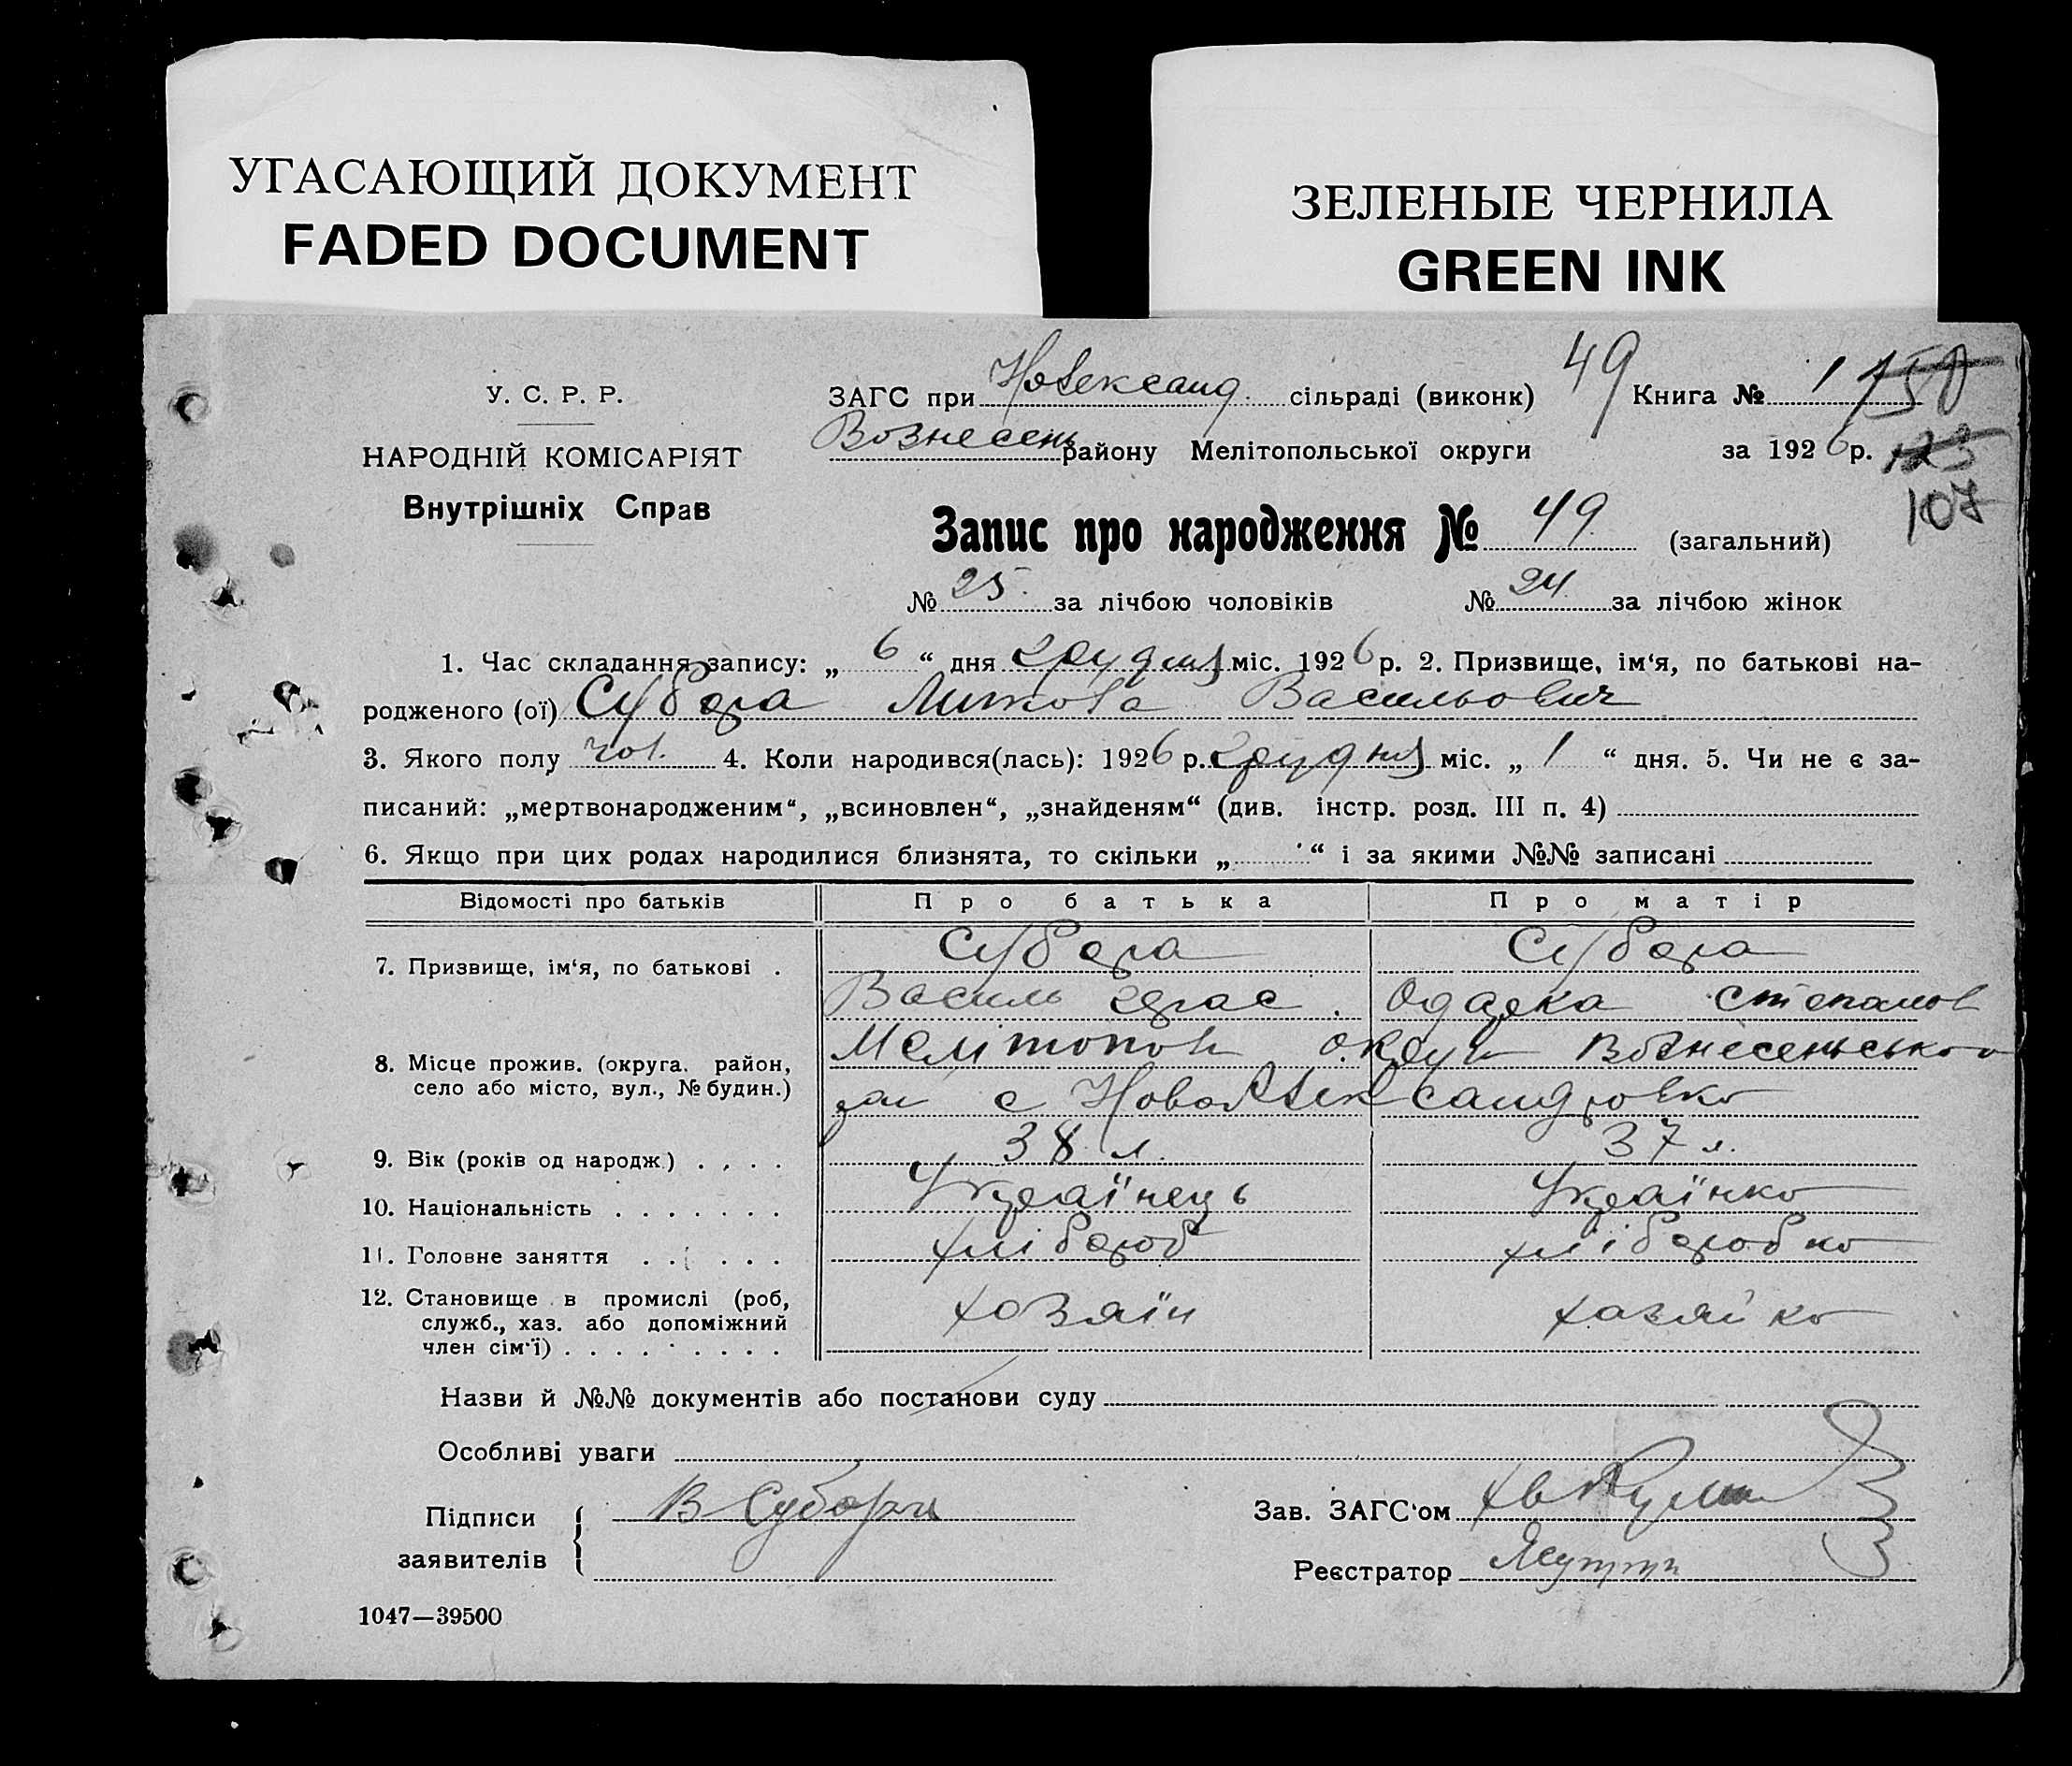 УГАСАЮЩИЙ ДОКУМЕНТ
FADED DOCUMENT
ЗЕЛЕНЫЕ ЧЕРНИЛА
GREEN INK
У. С. Р. Р.
НАРОДНІЙ КОМІСАРІЯТ
Внутрішніх Справ
ЗАГС при сільраді (виконк) 49 Книга № 1 150
Вознесен району Мелітопольської округи за 1926 р. 123
107
Запис про народження № 49 (загальний)
№ 25. за лічбою чоловіків № 24 за лічбою жінок
1. Час складання запису: „ 6 “ дня грудня міс. 1926 р. 2. Призвище, ім‘я, по батькові на-
родженого (ої) Субора Васильович
3. Якого полу чол. 4. Коли народився(лась): 1926 р. грудня міс. „ 1 “ дня. 5. Чи не є за-
писаний: „мертвонародженим“, „всиновлен“, „знайденям“ (див. інстр. розд. III п. 4)
6. Якщо при цих родах народилися близнята, то скільки „ “ і за якими №№ записані
Відомості про батьків Про батька Про матір
7. Призвище, ім‘я, по батькові . Субора Субора
Василь Одарка Степанов
8. Місце прожив. (округа, район, село або місто, вул., № будин.) Мелітопол округи Вознесенського
с Новоалександровка
9. Вік (років од народж.) . . . . 38 л. 37 л.
10. Національність . . . . . . . Українець Українка
11. Головне заняття . . . . . . хлібороб хліборобка
12. Становище в промислі (роб, служб., хаз. або допоміжний член сім‘ї) . . . . . . . . . хозяїн хазяйка
Назви й №№ документів або постанови суду
Особливі уваги
Підписи заявителів В Субора
Зав. ЗАГС‘ом
Реєстратор
1047—39500